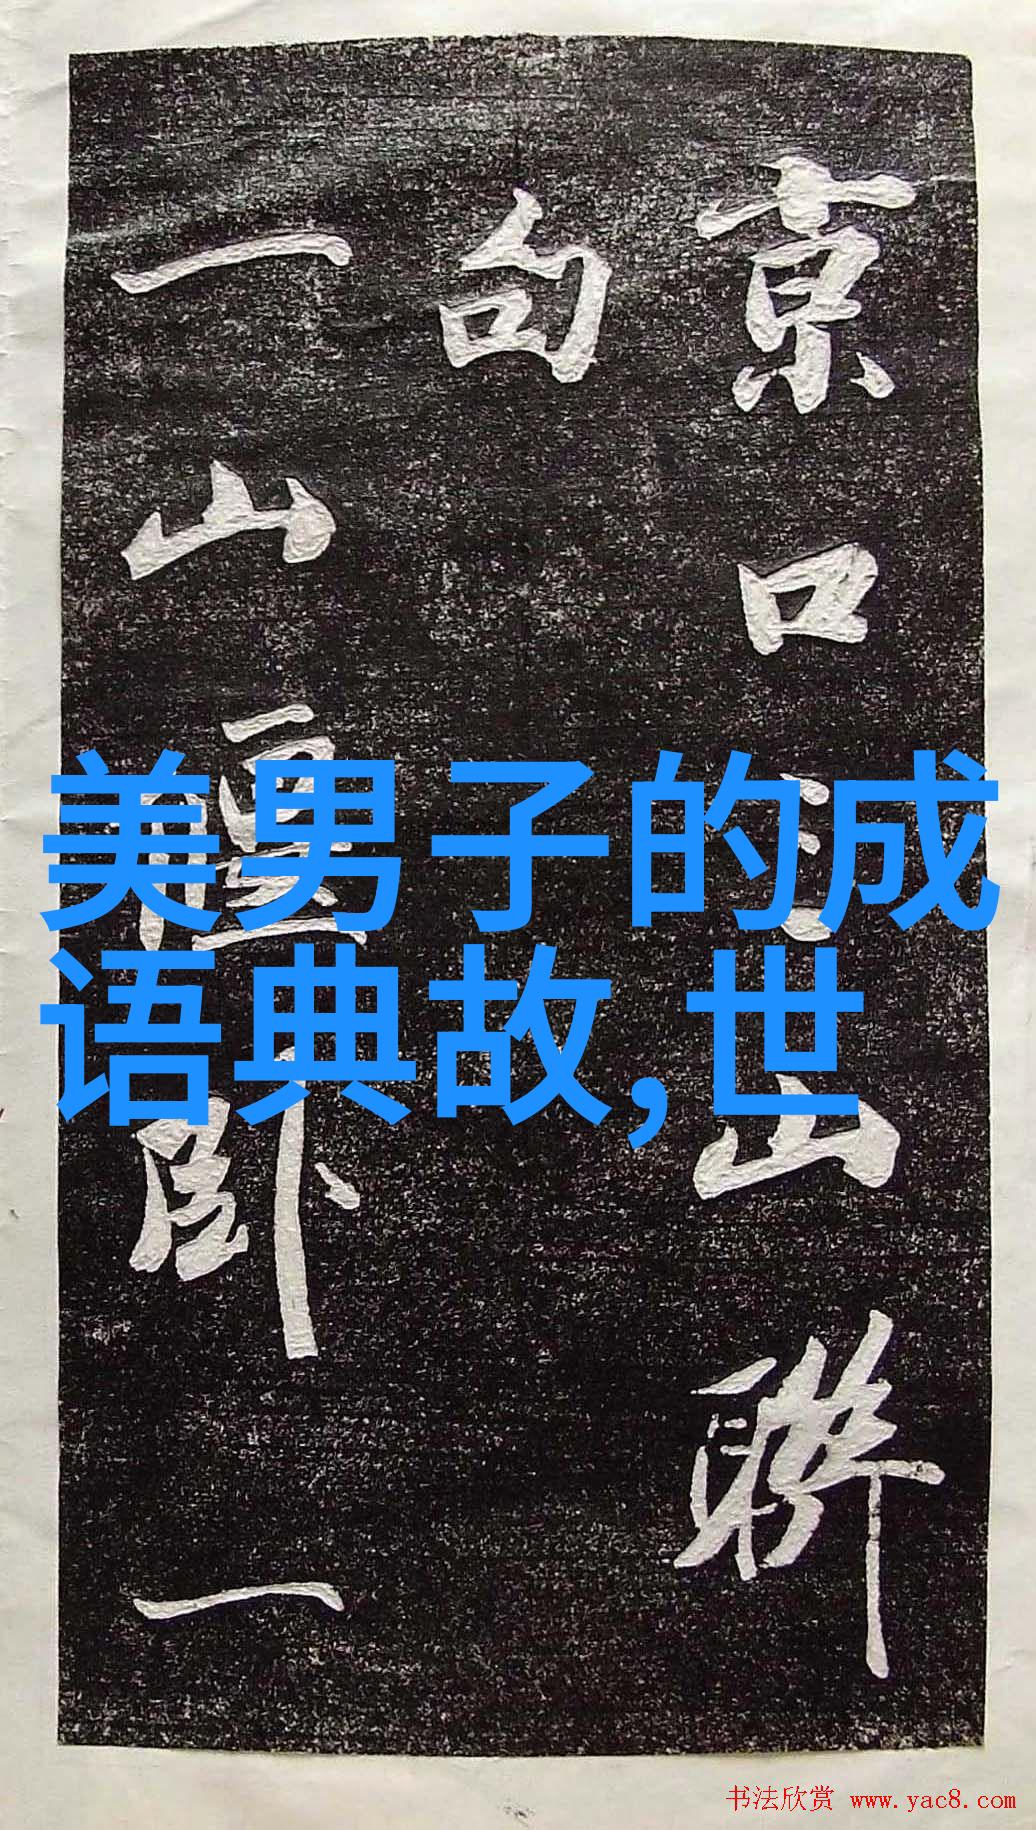 京口山聯
句
一山卧一
美男子的成
语典故,世
书法欣赏 www.yac8.com